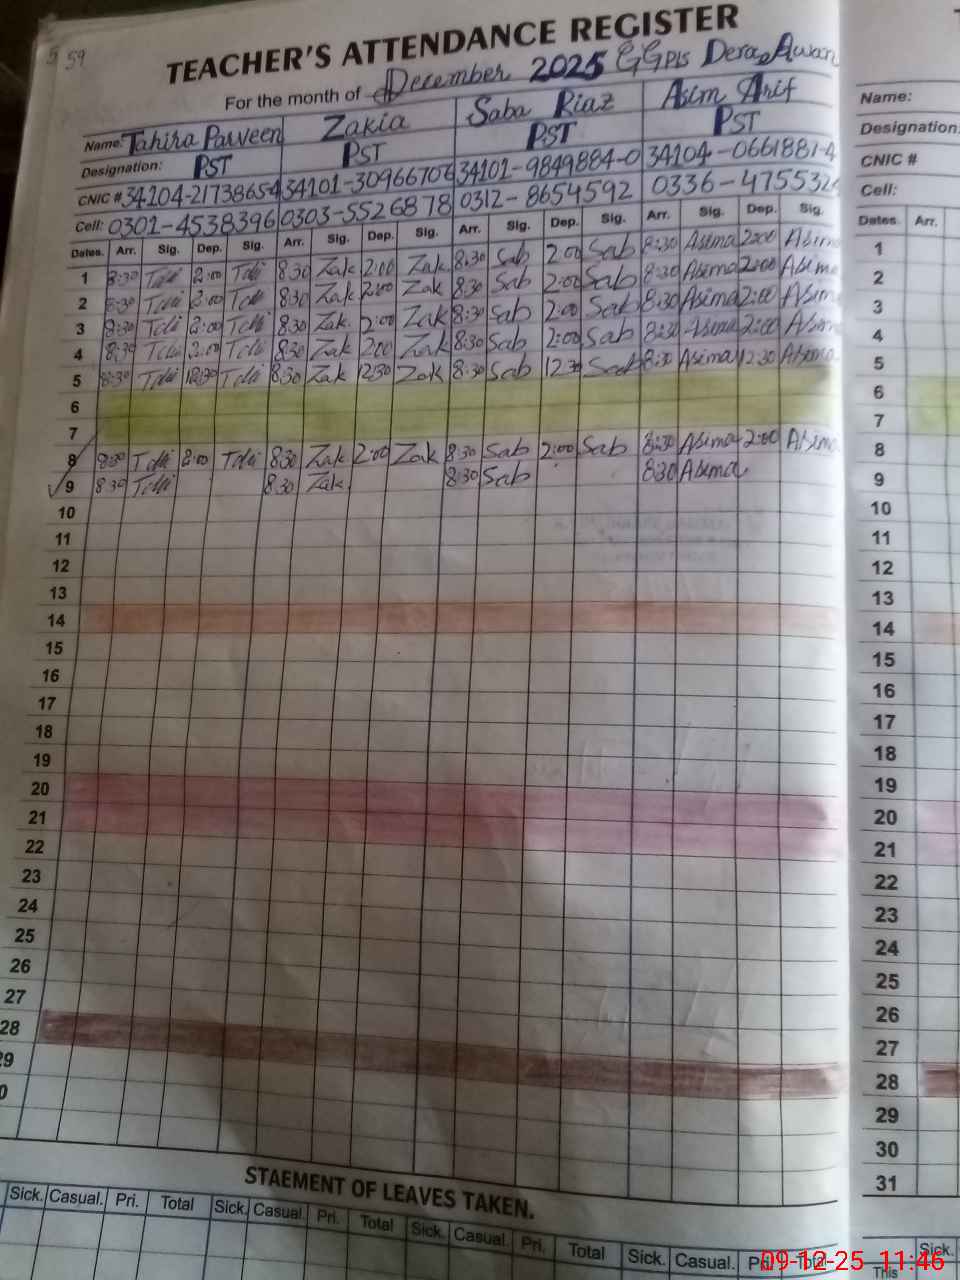 59
TEACHER'S ATTENDANCE REGISTER
For the month of December 2025 GGPIS Dera Awan
Name: Tahira Parveen Zakia Saba Riaz Asim Arif
Designation: PST PST PST PST
CNIC # 34104-2173865-4 34101-3096670-6 34101-9849884-0 34104-0661881-4
Cell: 0301-4538396 0303-5526878 0312-8654592 0336-475532
Dates. Arr. Sig. Dep. Sig. Arr. Sig. Dep. Sig. Arr. Sig. Dep. Sig. Arr. Sig. Dep. Sig.
1 8:30 2:00 8:30 Zak 2:00 Zak 8:30 Sab 2:00 Sab 8:30 Asima 2:00 Asima
2 8:30 2:00 8:30 Zak 2:00 Zak 8:30 Sab 2:00 Sab 8:30 Asima 2:00 Asima
3 8:30 2:00 8:30 Zak. 2:00 Zak 8:30 Sab 2:00 Sab 8:30 Asima 2:00 Asima
4 8:30 2:00 8:30 Zak 2:00 Zak 8:30 Sab 2:00 Sab 8:30 Asima 2:00 Asima
5 8:30 12:30 8:30 Zak 12:30 Zak 8:30 Sab 12:30 Sab 8:30 Asima 12:30 Asima
6
7
8 8:30 2:00 8:30 Zak 2:00 Zak 8:30 Sab 2:00 Sab 8:30 Asima 2:00 Asima
9 8:30 8:30 Zak 8:30 Sab 8:30 Asima
10
11
12
13
14
15
16
17
18
19
20
21
22
23
24
25
26
27
28
29
0
STAEMENT OF LEAVES TAKEN.
Sick. Casual. Pri. Total Sick. Casual. Pri. Total Sick. Casual. Pri. Total Sick. Casual. Pri. Total
Name:
Designation:
CNIC #
Cell:
Dates. Arr.
1
2
3
4
5
6
7
8
9
10
11
12
13
14
15
16
17
18
19
20
21
22
23
24
25
26
27
28
29
30
31
Sick.
This
09-12-25 11:46